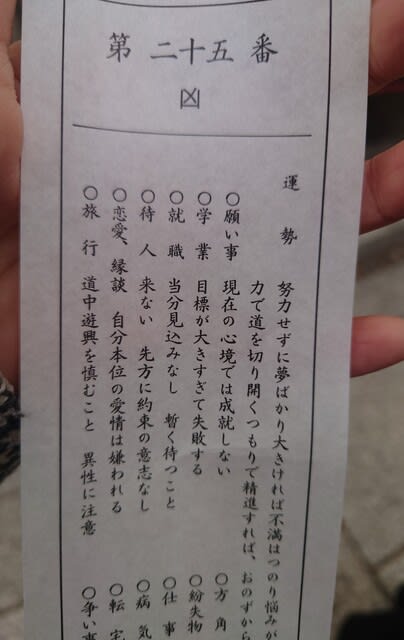 第二十五番
凶
運勢 努力せずに夢ばかり大きければ不満はつのり悩みが
力で道を切り開くつもりで精進すれば、おのずから
○願い事 現在の心境では成就しない
○学業 目標が大きすぎて失敗する
○就職 当分見込みなし 暫く待つこと
○待人 来ない 先方に約束の意志なし
○恋愛、縁談 自分本位の愛情は嫌われる
○旅行 道中遊興を慎むこと 異性に注意
○方角
○紛失物
○仕事
○病気
○転宅
○争い事